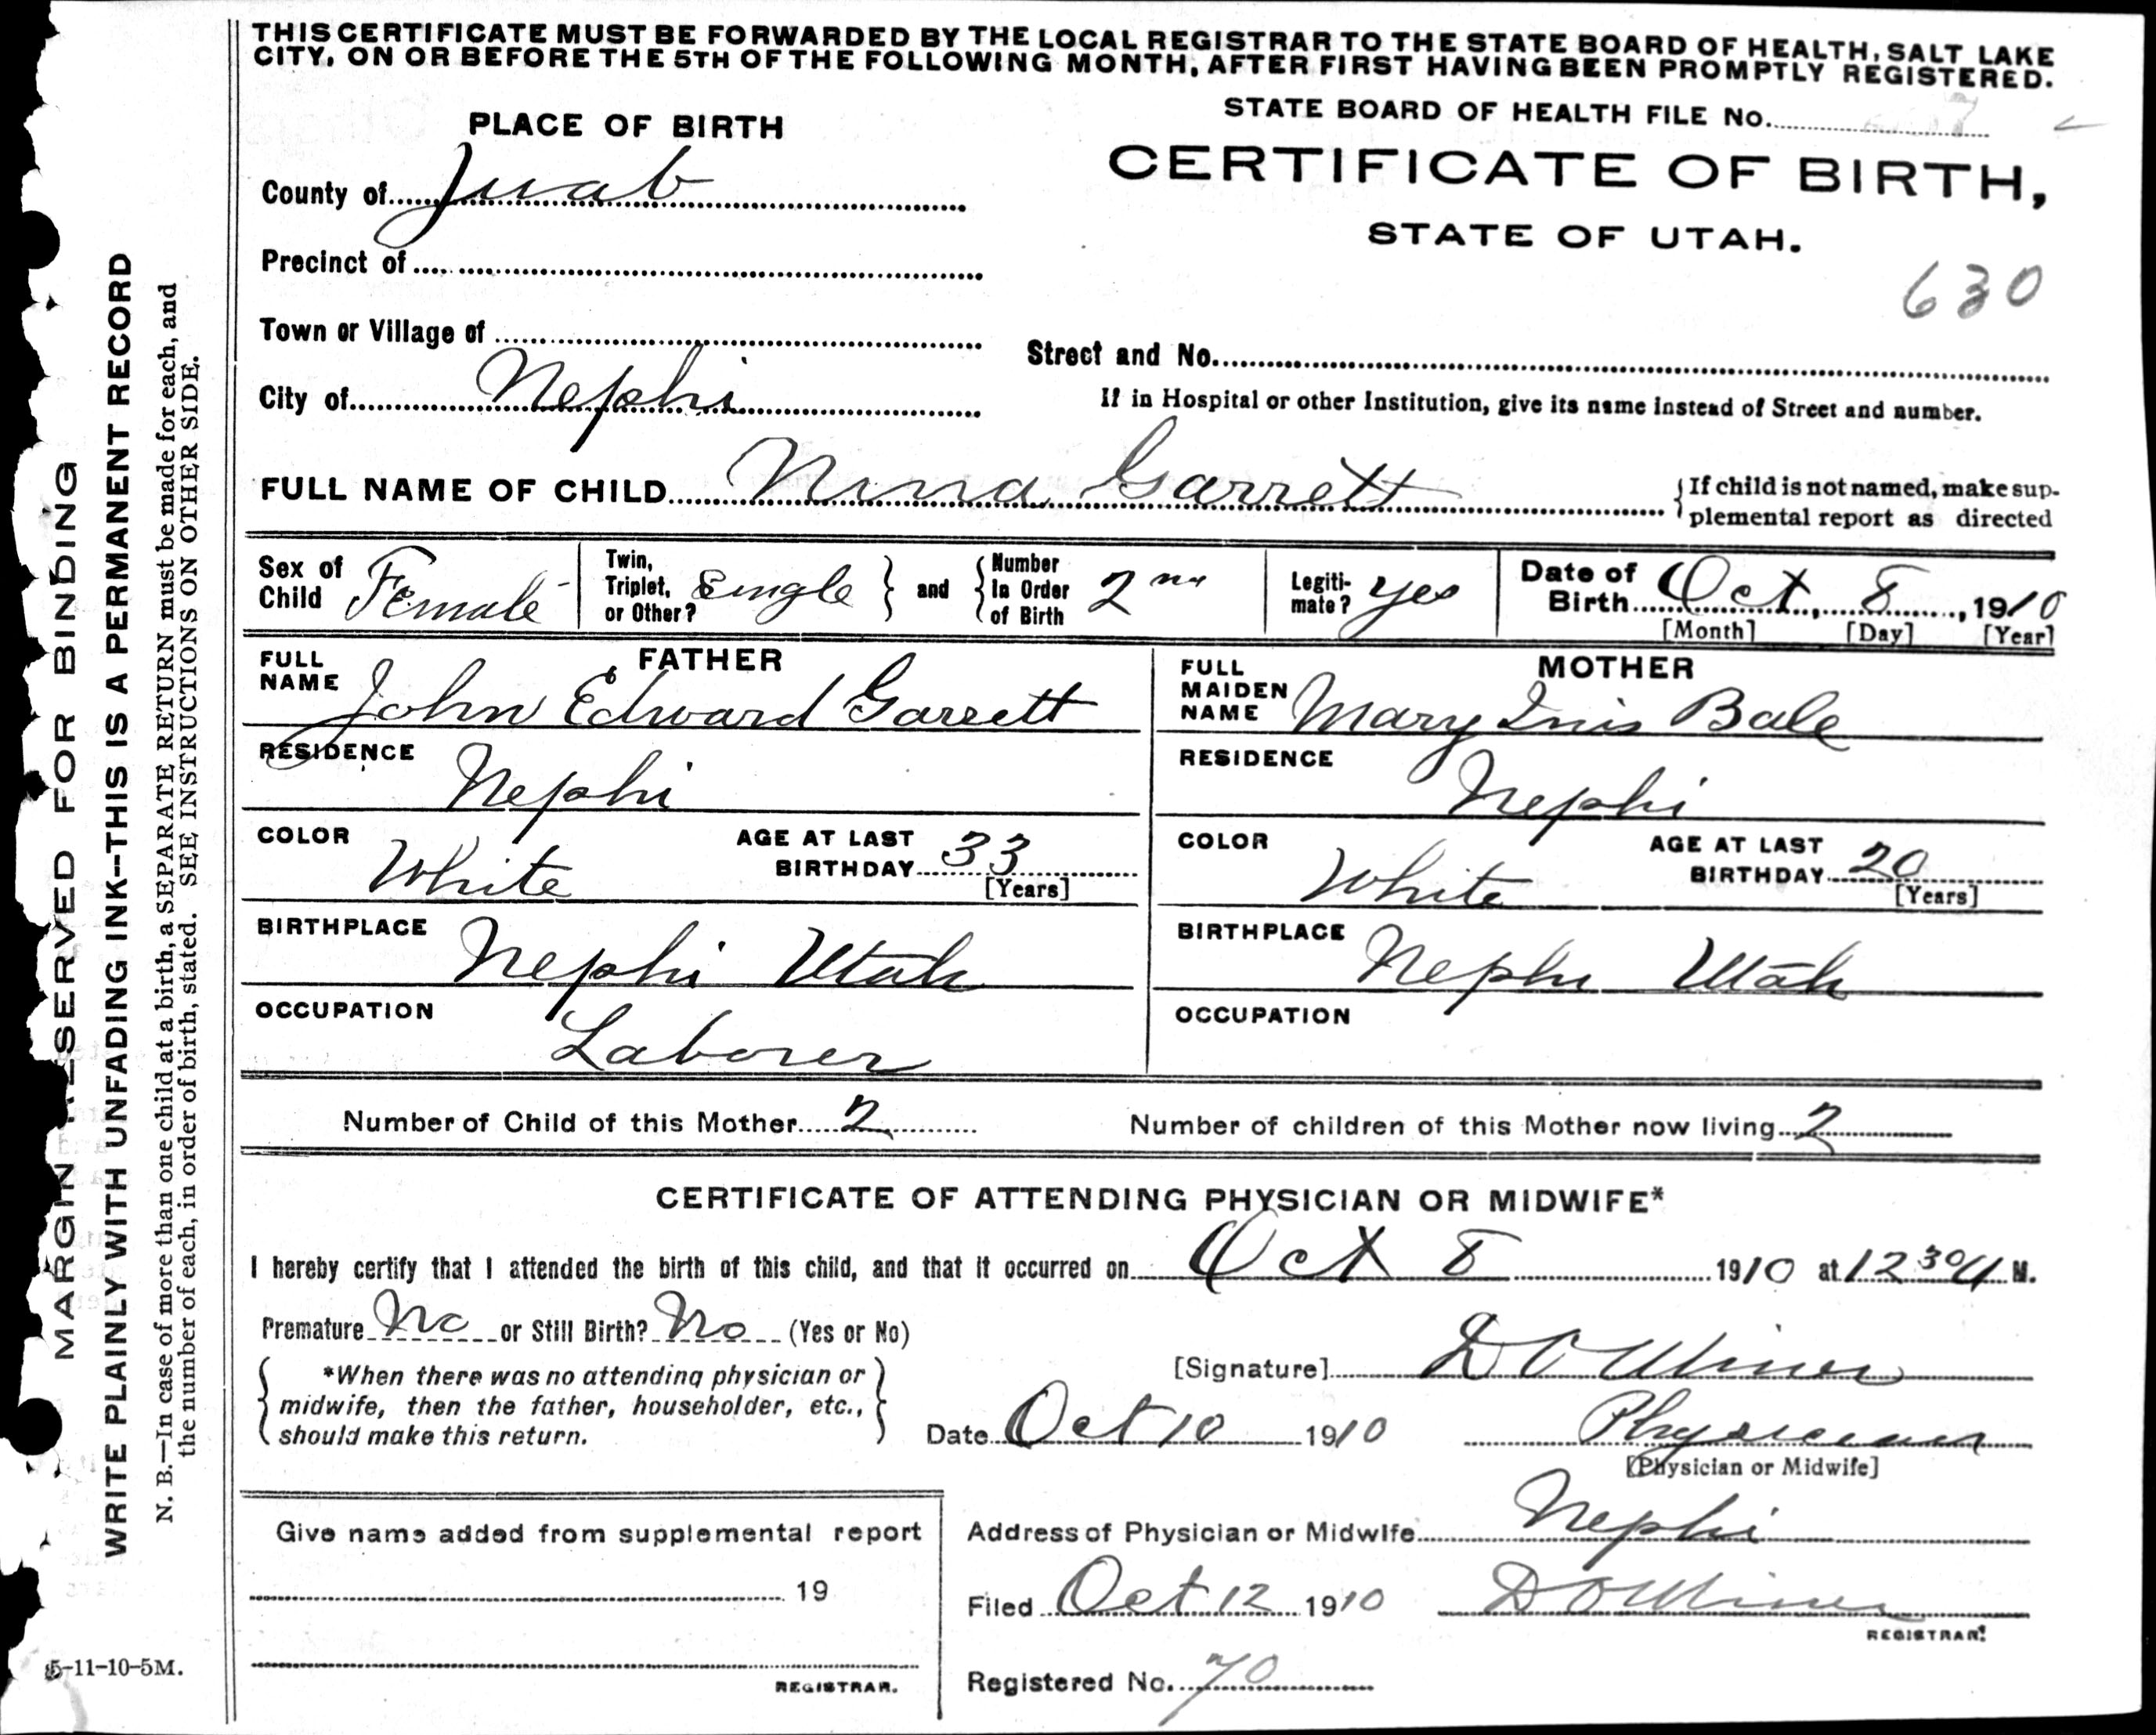 THIS CERTIFICATE MUST BE FORWARDED BY THE LOCAL REGISTRAR TO THE STATE BOARD OF HEALTH, SALT LAKE
CITY, ON OR BEFORE THE 5TH OF THE FOLLOWING MONTH, AFTER FIRST HAVING BEEN PROMPTLY REGISTERED.
PLACE OF BIRTH
STATE BOARD OF HEALTH FILE No.
CERTIFICATE OF BIRTH,
STATE OF UTAH.
630
County of Juab
Precinct of
Town or Village of
City of Nephi
Street and No.
If in Hospital or other Institution, give its name instead of Street and number.
FULL NAME OF CHILD Nina Garrett
If child is not named, make sup-
plemental report as directed
Sex of Child Female
Twin, Triplet, or Other? Single and Number In Order of Birth 2nd
Legiti-mate? yes
Date of Birth Oct, 8, 1910
[Month] [Day] [Year]
FATHER
FULL NAME John Edward Garrett
RESIDENCE Nephi
COLOR White
AGE AT LAST BIRTHDAY 33
[Years]
BIRTHPLACE Nephi Utah
OCCUPATION Laborer
MOTHER
FULL MAIDEN NAME Mary Inis Bale
RESIDENCE Nephi
COLOR White
AGE AT LAST BIRTHDAY 20
[Years]
BIRTHPLACE Nephi Utah
OCCUPATION
Number of Child of this Mother 2
Number of children of this Mother now living 2
CERTIFICATE OF ATTENDING PHYSICIAN OR MIDWIFE*
I hereby certify that I attended the birth of this child, and that it occurred on Oct 8 1910 at 12 30 a M.
Premature No or Still Birth? No (Yes or No)
*When there was no attending physician or
midwife, then the father, householder, etc.,
should make this return.
[Signature] D O Miner
Date Oct 10 1910
Physician
[Physician or Midwife]
Give name added from supplemental report
19
REGISTRAR.
Address of Physician or Midwife Nephi
Filed Oct 12 1910 D O Miner
REGISTRAR.
Registered No. 70
MARGIN RESERVED FOR BINDING
WRITE PLAINLY WITH UNFADING INK--THIS IS A PERMANENT RECORD
N. B.—In case of more than one child at a birth, a SEPARATE RETURN must be made for each, and
the number of each, in order of birth, stated. SEE INSTRUCTIONS ON OTHER SIDE.
5-11-10-5M.